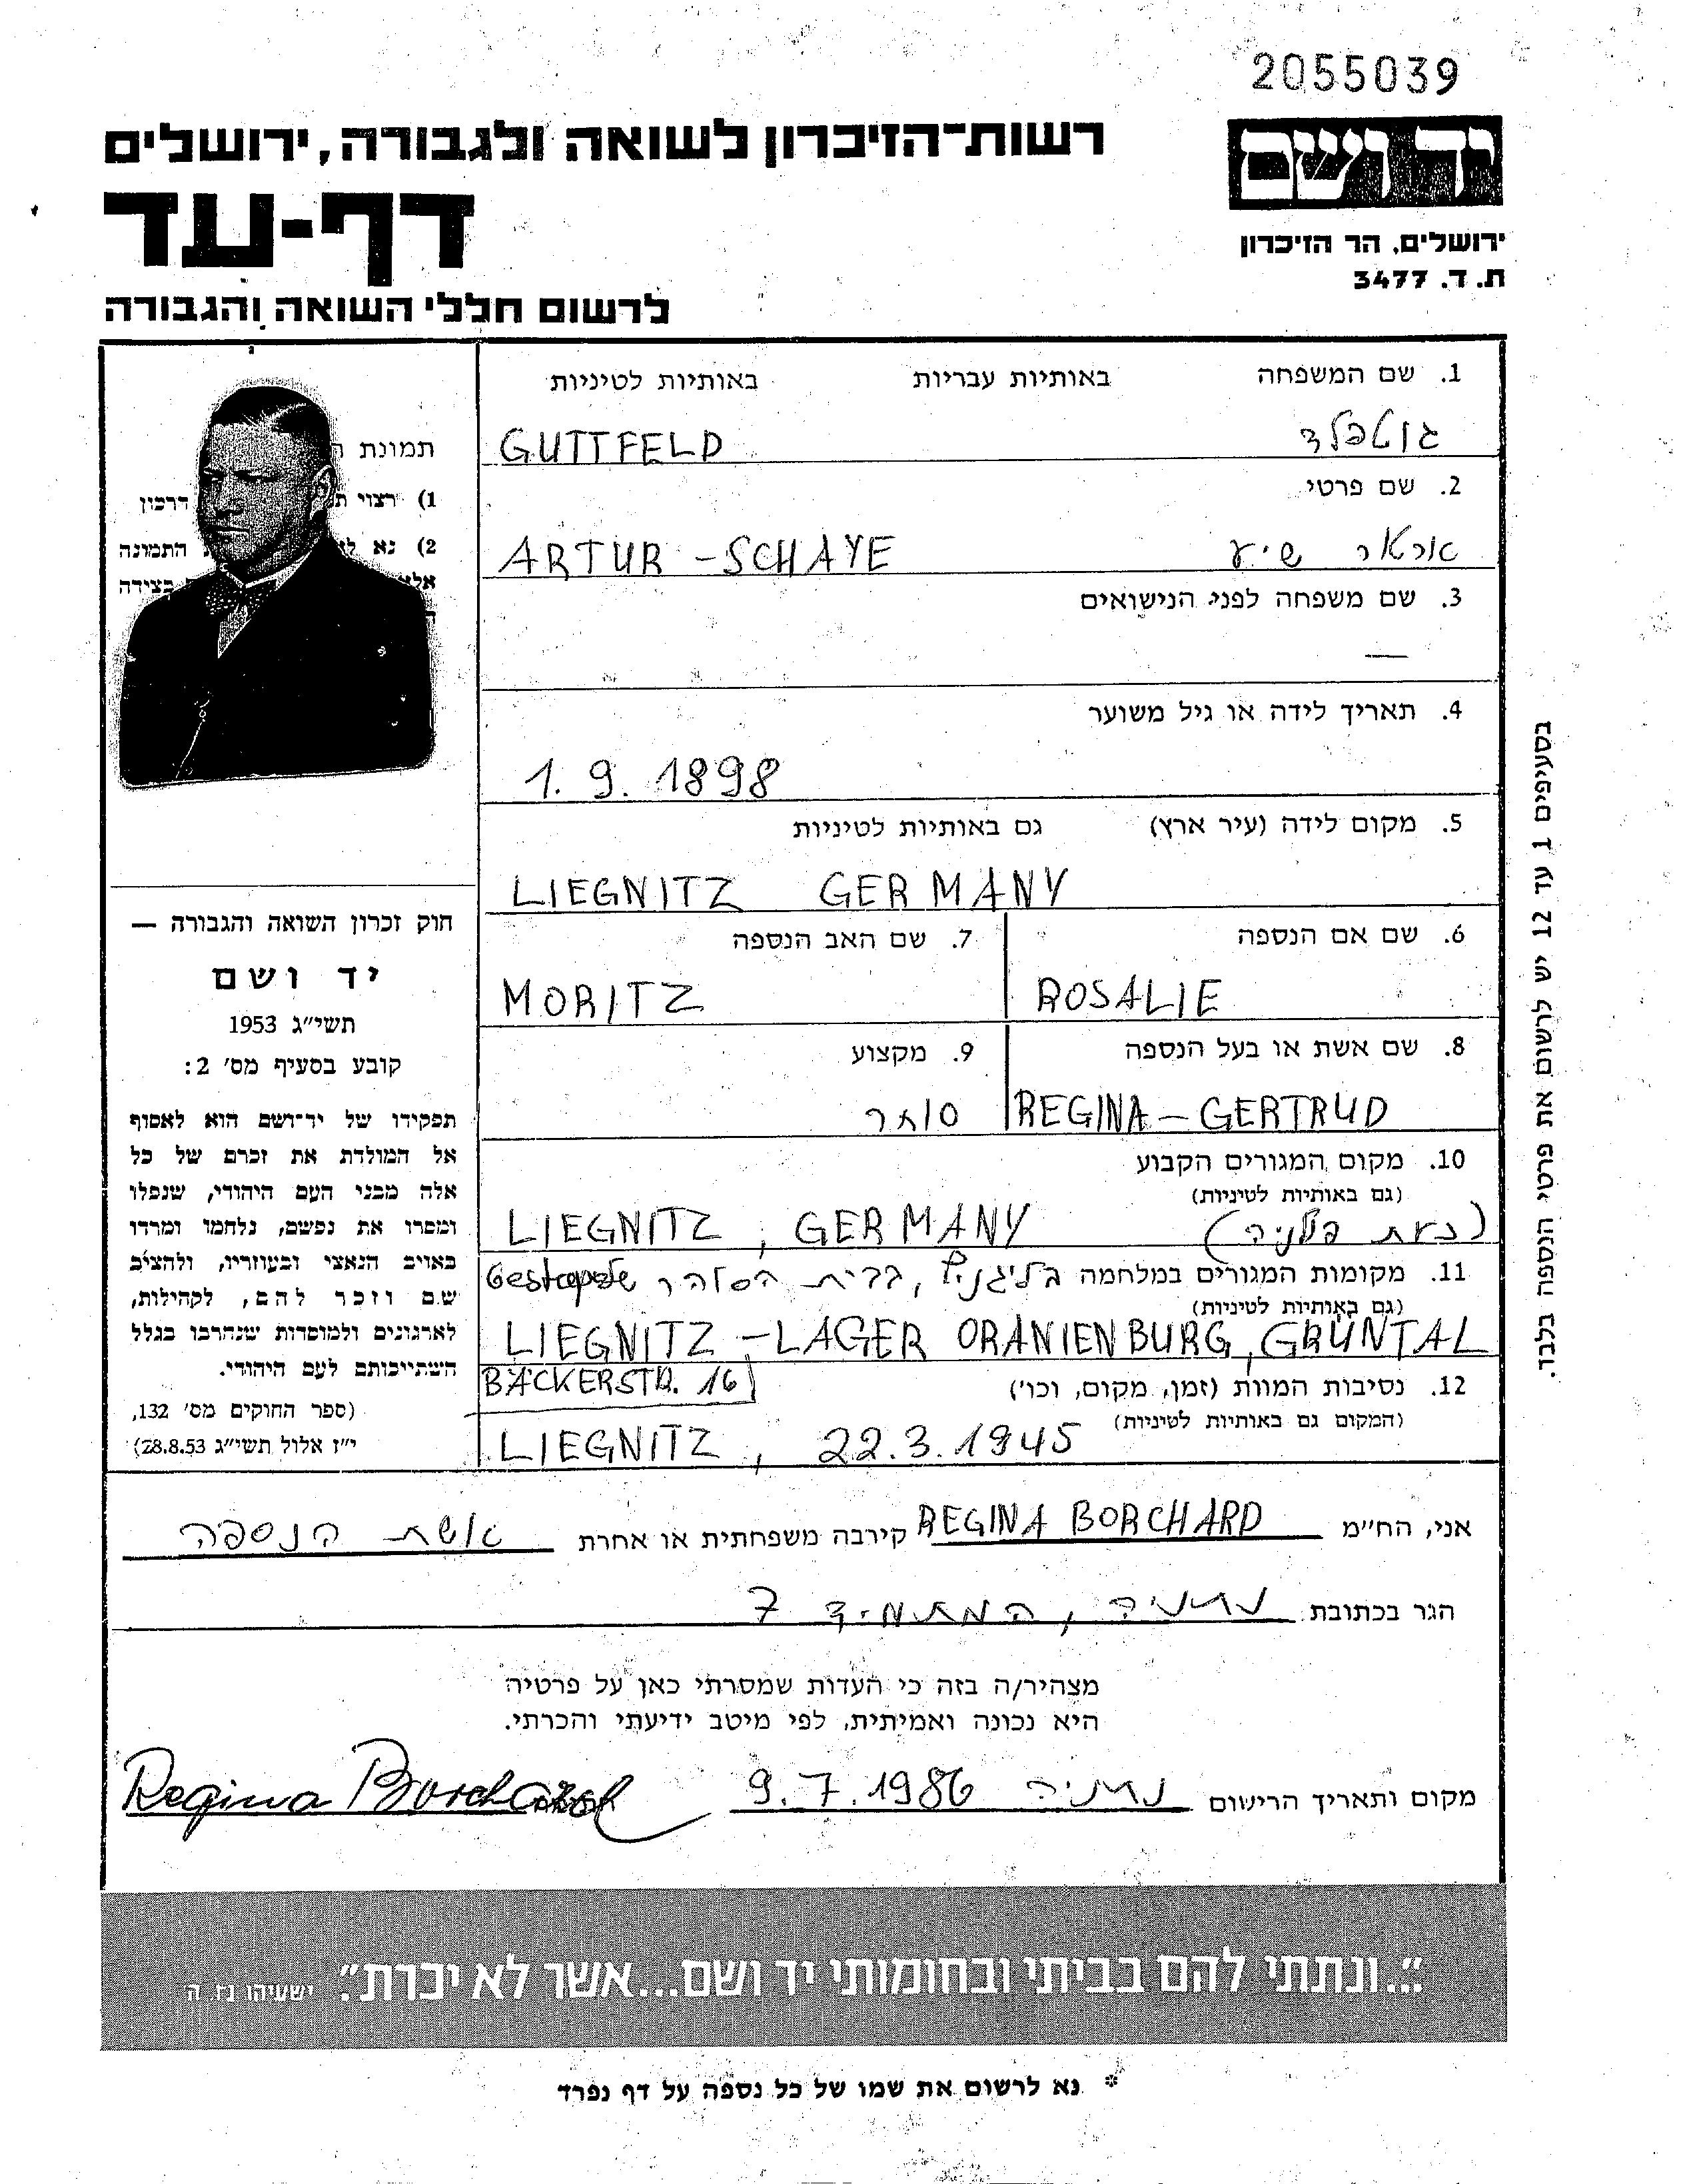 2055039
רשות-הזיכרון לשואה ולגבורה, ירושלים
יד ושם
דף-עד
ירושלים, הר הזיכרון
ת. ד. 3477
לרשום חללי השואה והגבורה
תמונת ה
1) רצוי ת דרכון
2) נא לז התמונה
אלא בצידה
ה
חוק זכרון השואה והגבורה —
יד ושם
תשי״ג 1953
קובע בסעיף מס׳ 2:
תפקידו של יד־ושם הוא לאסוף
אל המולדת את זכרם של כל
אלה מבני העם היהודי, שנפלו
ומסרו את נפשם, נלחמו ומרדו
באויב הנאצי ובעוזריו, ולהציב
שם וזכר להם, לקהילות,
לארגונים ולמוסדות שנחרבו בגלל
השתייכותם לעם היהודי.
(ספר החוקים מס׳ 132,
י״ז אלול תשי״ג 28.8.53)
1. שם המשפחה באותיות עבריות באותיות לטיניות
גוטפלד GUTTFELD
2. שם פרטי
ארטאר שיע ARTUR - SCHAYE
3. שם משפחה לפני הנישואים
—
4. תאריך לידה או גיל משוער
1. 9. 1898
5. מקום לידה (עיר ארץ) גם באותיות לטיניות
LIEGNITZ GERMANY
6. שם אם הנספה 7. שם האב הנספה
ROSALIE MORITZ
8. שם אשת או בעל הנספה 9. מקצוע
REGINA - GERTRUD סוחר
10. מקום המגורים הקבוע
(גם באותיות לטיניות)
(כעת פולניה) LIEGNITZ, GERMANY
11. מקומות המגורים במלחמה בליגניץ, בבית הסוהר של Gestapo
(גם באותיות לטיניות)
LIEGNITZ - LAGER ORANIENBURG, GRÜNTAL
BÄCKERSTR. 16
12. נסיבות המוות (זמן, מקום, וכו׳)
(המקום גם באותיות לטיניות)
LIEGNITZ, 22.3.1945
בסעיפים 1 עד 12 יש לרשום את פרטי הנספה בלבד.
אני, הח״מ REGINA BORCHARD קירבה משפחתית או אחרת אשת הנספה
הגר בכתובת נתניה, המתמיד 7
מצהיר/ה בזה כי העדות שמסרתי כאן על פרטיה
היא נכונה ואמיתית, לפי מיטב ידיעתי והכרתי.
מקום ותאריך הרישום נתניה 9.7.1986 Regina Borchard
״...ונתתי להם בביתי ובחומותי יד ושם...אשר לא יכרת״. ישעיהו נו, ה
* נא לרשום את שמו של כל נספה על דף נפרד